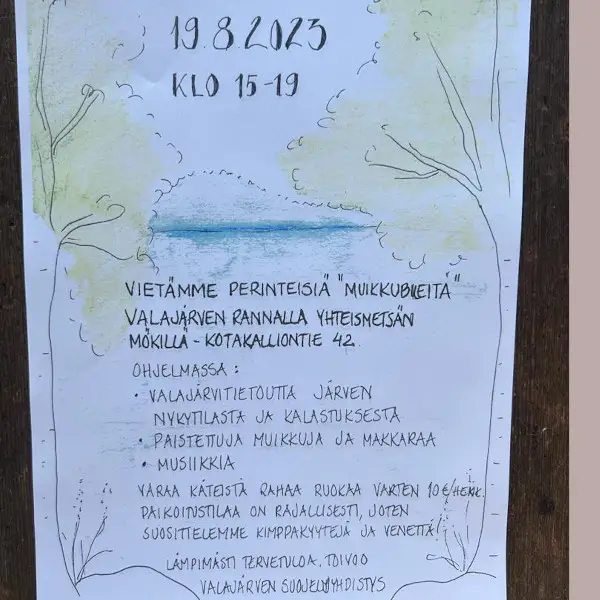 19.8.2023
KLO 15-19
VIETÄMME PERINTEISIÄ "MUIKKUBILEITÄ"
VALAJÄRVEN RANNALLA YHTEISMETSÄN
MÖKILLÄ - KOTAKALLIONTIE 42.
OHJELMASSA:
• VALAJÄRVITIETOUTTA JÄRVEN
NYKYTILASTA JA KALASTUKSESTA
• PAISTETTUJA MUIKKUJA JA MAKKARAA
• MUSIIKKIA
VARAA KÄTEISTÄ RAHAA RUOKAA VARTEN 10€/HENK.
PAIKOITUSTILAA ON RAJALLISESTI, JOTEN
SUOSITTELEMME KIMPPAKYYTEJÄ JA VENETTÄ!
LÄMPIMÄSTI TERVETULOA, TOIVOO
VALAJÄRVEN SUOJELUYHDISTYS